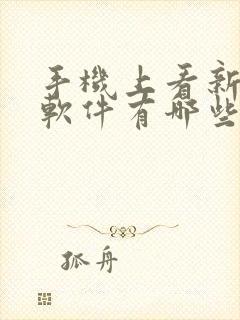 手機上看新
軟件有哪些
孤舟